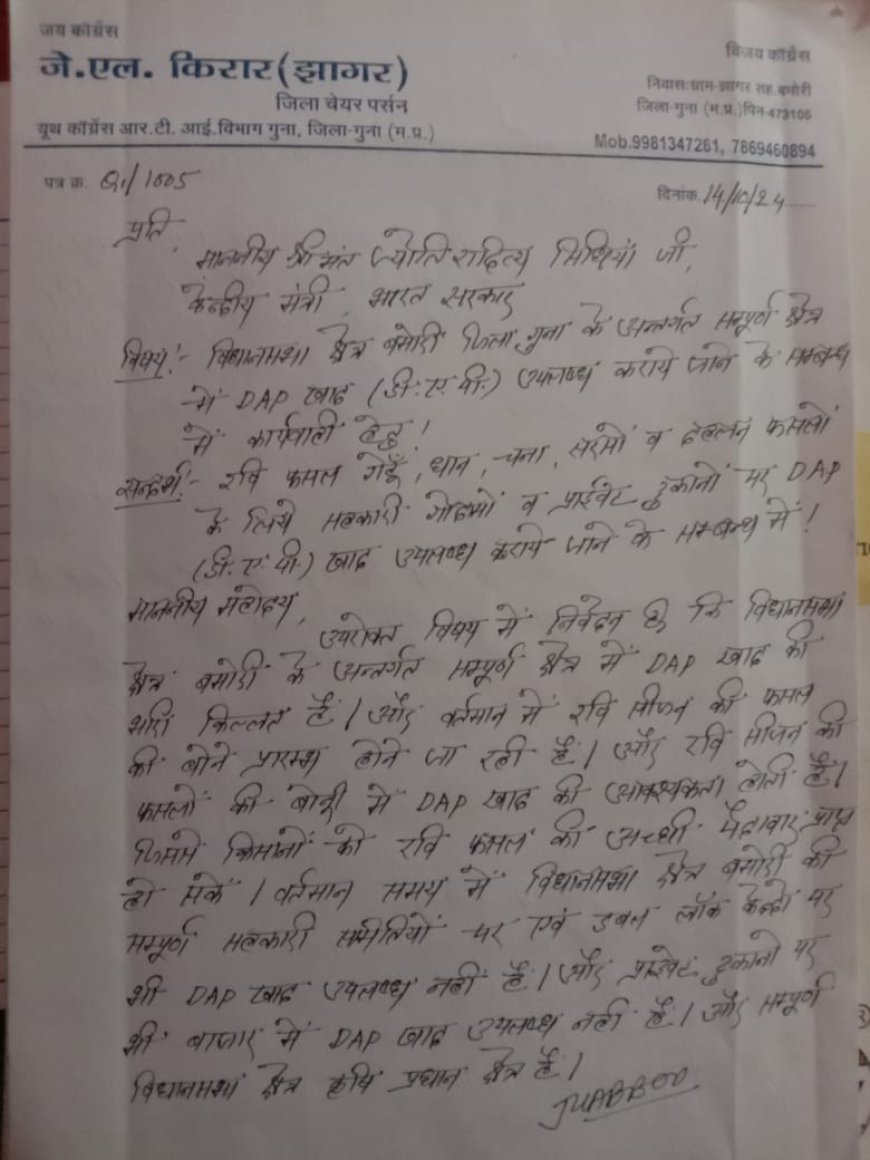 जय काँग्रेस
विजय काँग्रेस
जे.एल. किरार(झागर)
जिला चेयर पर्सन
यूथ काँग्रेस आर.टी. आई.विभाग गुना, जिला-गुना (म.प्र.)
निवास:ग्राम-झागर तह.बमोरी
जिला-गुना (म.प्र.)पिन-473105
Mob.9981347261, 7869460894
पत्र क्र. Q1/1005
दिनांक. 14/10/24
प्रति,
माननीय श्रीमंत ज्योतिरादित्य सिंधिया जी,
केन्द्रीय मंत्री, भारत सरकार
विषय:- विधानसभा क्षेत्र बमोरी जिला गुना के अन्तर्गत सम्पूर्ण क्षेत्र
में DAP खाद (डी.ए.पी.) उपलब्ध कराये जाने के सम्बन्ध
में कार्यवाही हेतु!
सन्दर्भ:- रवि फसल गेहूँ, धान, चना, सरसों व दलहन फसलों
के लिये सहकारी गोदामों व प्राईवेट दुकानों पर DAP
(डी.ए.पी.) खाद उपलब्ध कराये जाने के सम्बन्ध में!
माननीय महोदय,
उपरोक्त विषय में निवेदन है कि विधानसभा
क्षेत्र बमोरी के अन्तर्गत सम्पूर्ण क्षेत्र में DAP खाद की
भारी किल्लत हैं। और वर्तमान में रवि सीजन की फसल
की बोने प्रारम्भ होने जा रही है। और रवि सीजन की
फसलों की बोनी में DAP खाद की आवश्यकता होती है।
जिससे किसानों को रवि फसल की अच्छी पैदावार प्राप्त
हो सकें। वर्तमान समय में विधानसभा क्षेत्र बमोरी की
सम्पूर्ण सहकारी समितियों पर एवं डबल लॉक केन्द्रो पर
भी DAP खाद उपलब्ध नहीं है। और प्राइवेट दुकानो पर
भी बाजार में DAP खाद उपलब्ध नहीं है। और सम्पूर्ण
विधानसभा क्षेत्र कृषि प्रधान क्षेत्र है।